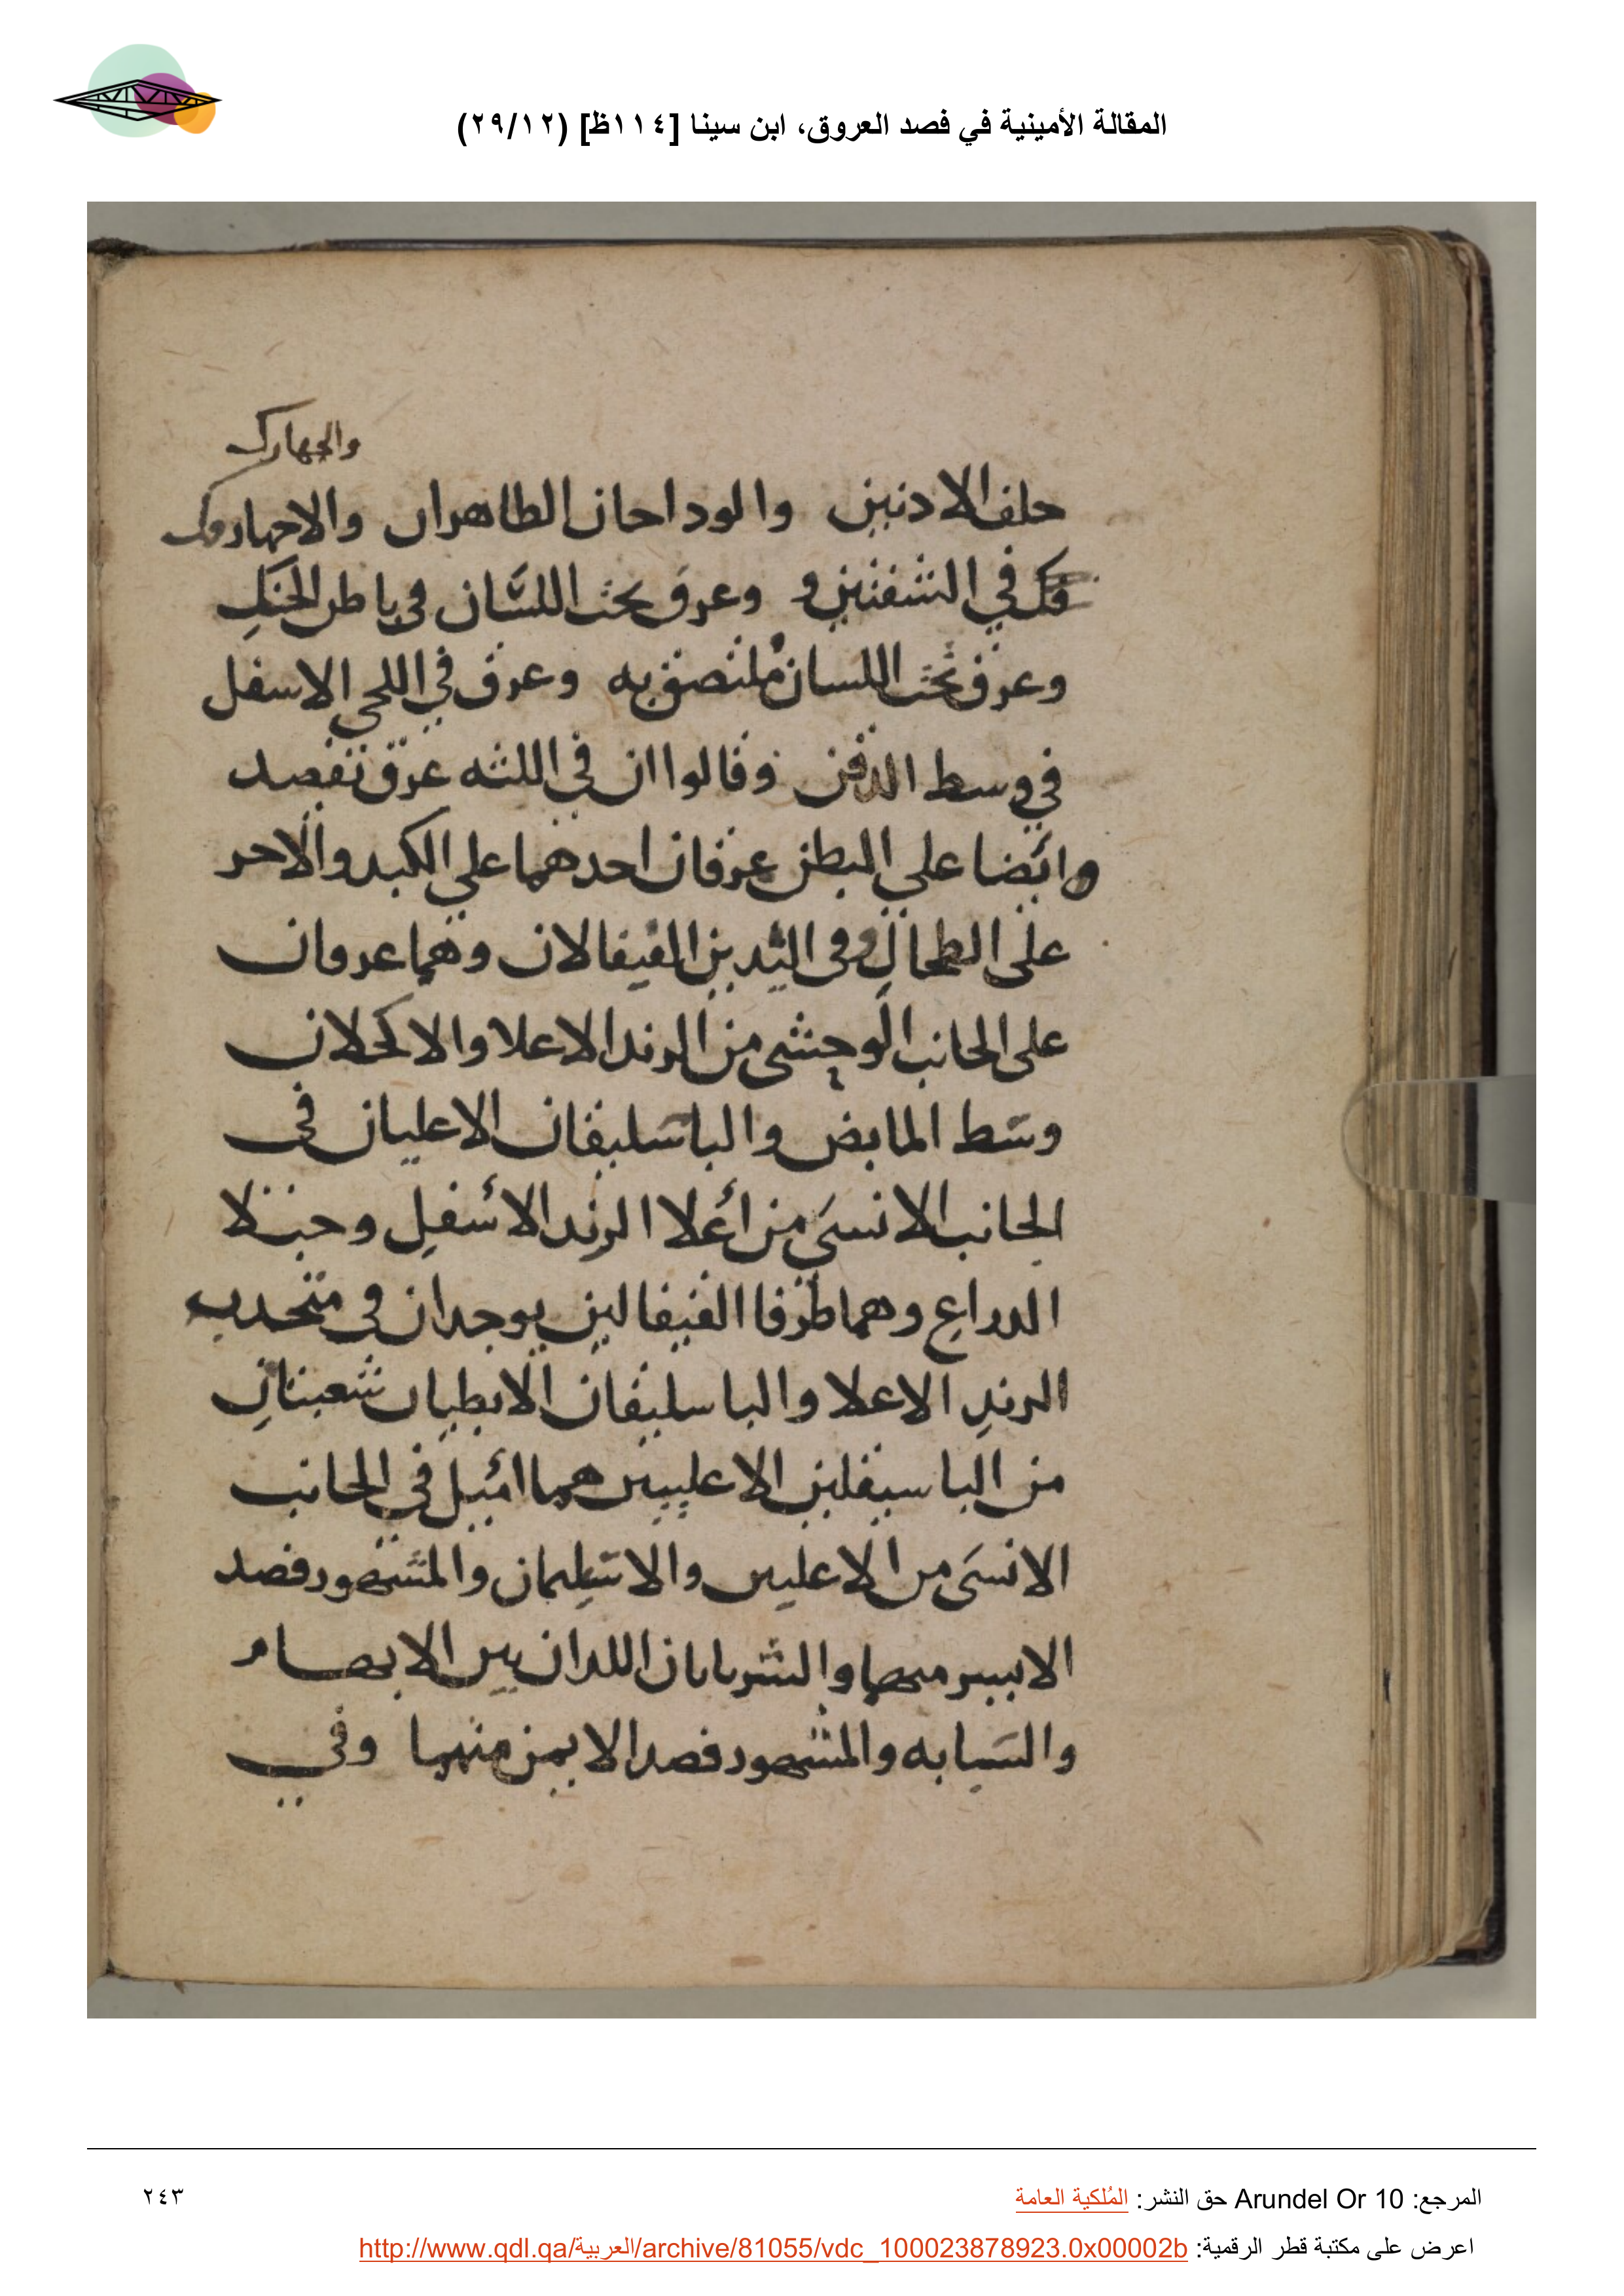 المقالة الأمينية في فصد العروق، ابن سينا [١١٤ظ] (٢٩/١٢)
والجهارك
حلف الادنين والوداحان الطاهران والاجهارك
في الشفتين و وعرق تحت اللسان في باطن الحنك
وعرق تحت اللسان ملتصق به وعرق في اللحي الاسفل
في وسط الدقن وقالوا ان في اللثه عرق تفصد
وايضا علي البطن عرقان احدهما علي الكبد والاخر
على الطحال وفى اليدين القيفالان وهما عرقان
على الجانب الوحشى من الزند الاعلا والاكحلان
وسط المابض والباسليقان الاعليان فى
الجانب الانسى من أعلا الزند الأسفل وحبلا
الدراع وهما طرفا القيفالين يوجدان في متحدب
الزند الاعلا والباسليقان الابطيان شعبتان
من الباسيقلين الاعليين هما اميل في الجانب
الانسى من الاعليين والاسيلمان والمشهور فصد
الايسر منهما والشريانان اللدان بين الابهام
والسبابه والمشهور فصد الايمن منهما وفي
المرجع: Arundel Or 10 حق النشر: المُلكية العامة
٢٤٣
اعرض على مكتبة قطر الرقمية: http://www.qdl.qa/العربية/archive/81055/vdc_100023878923.0x00002b